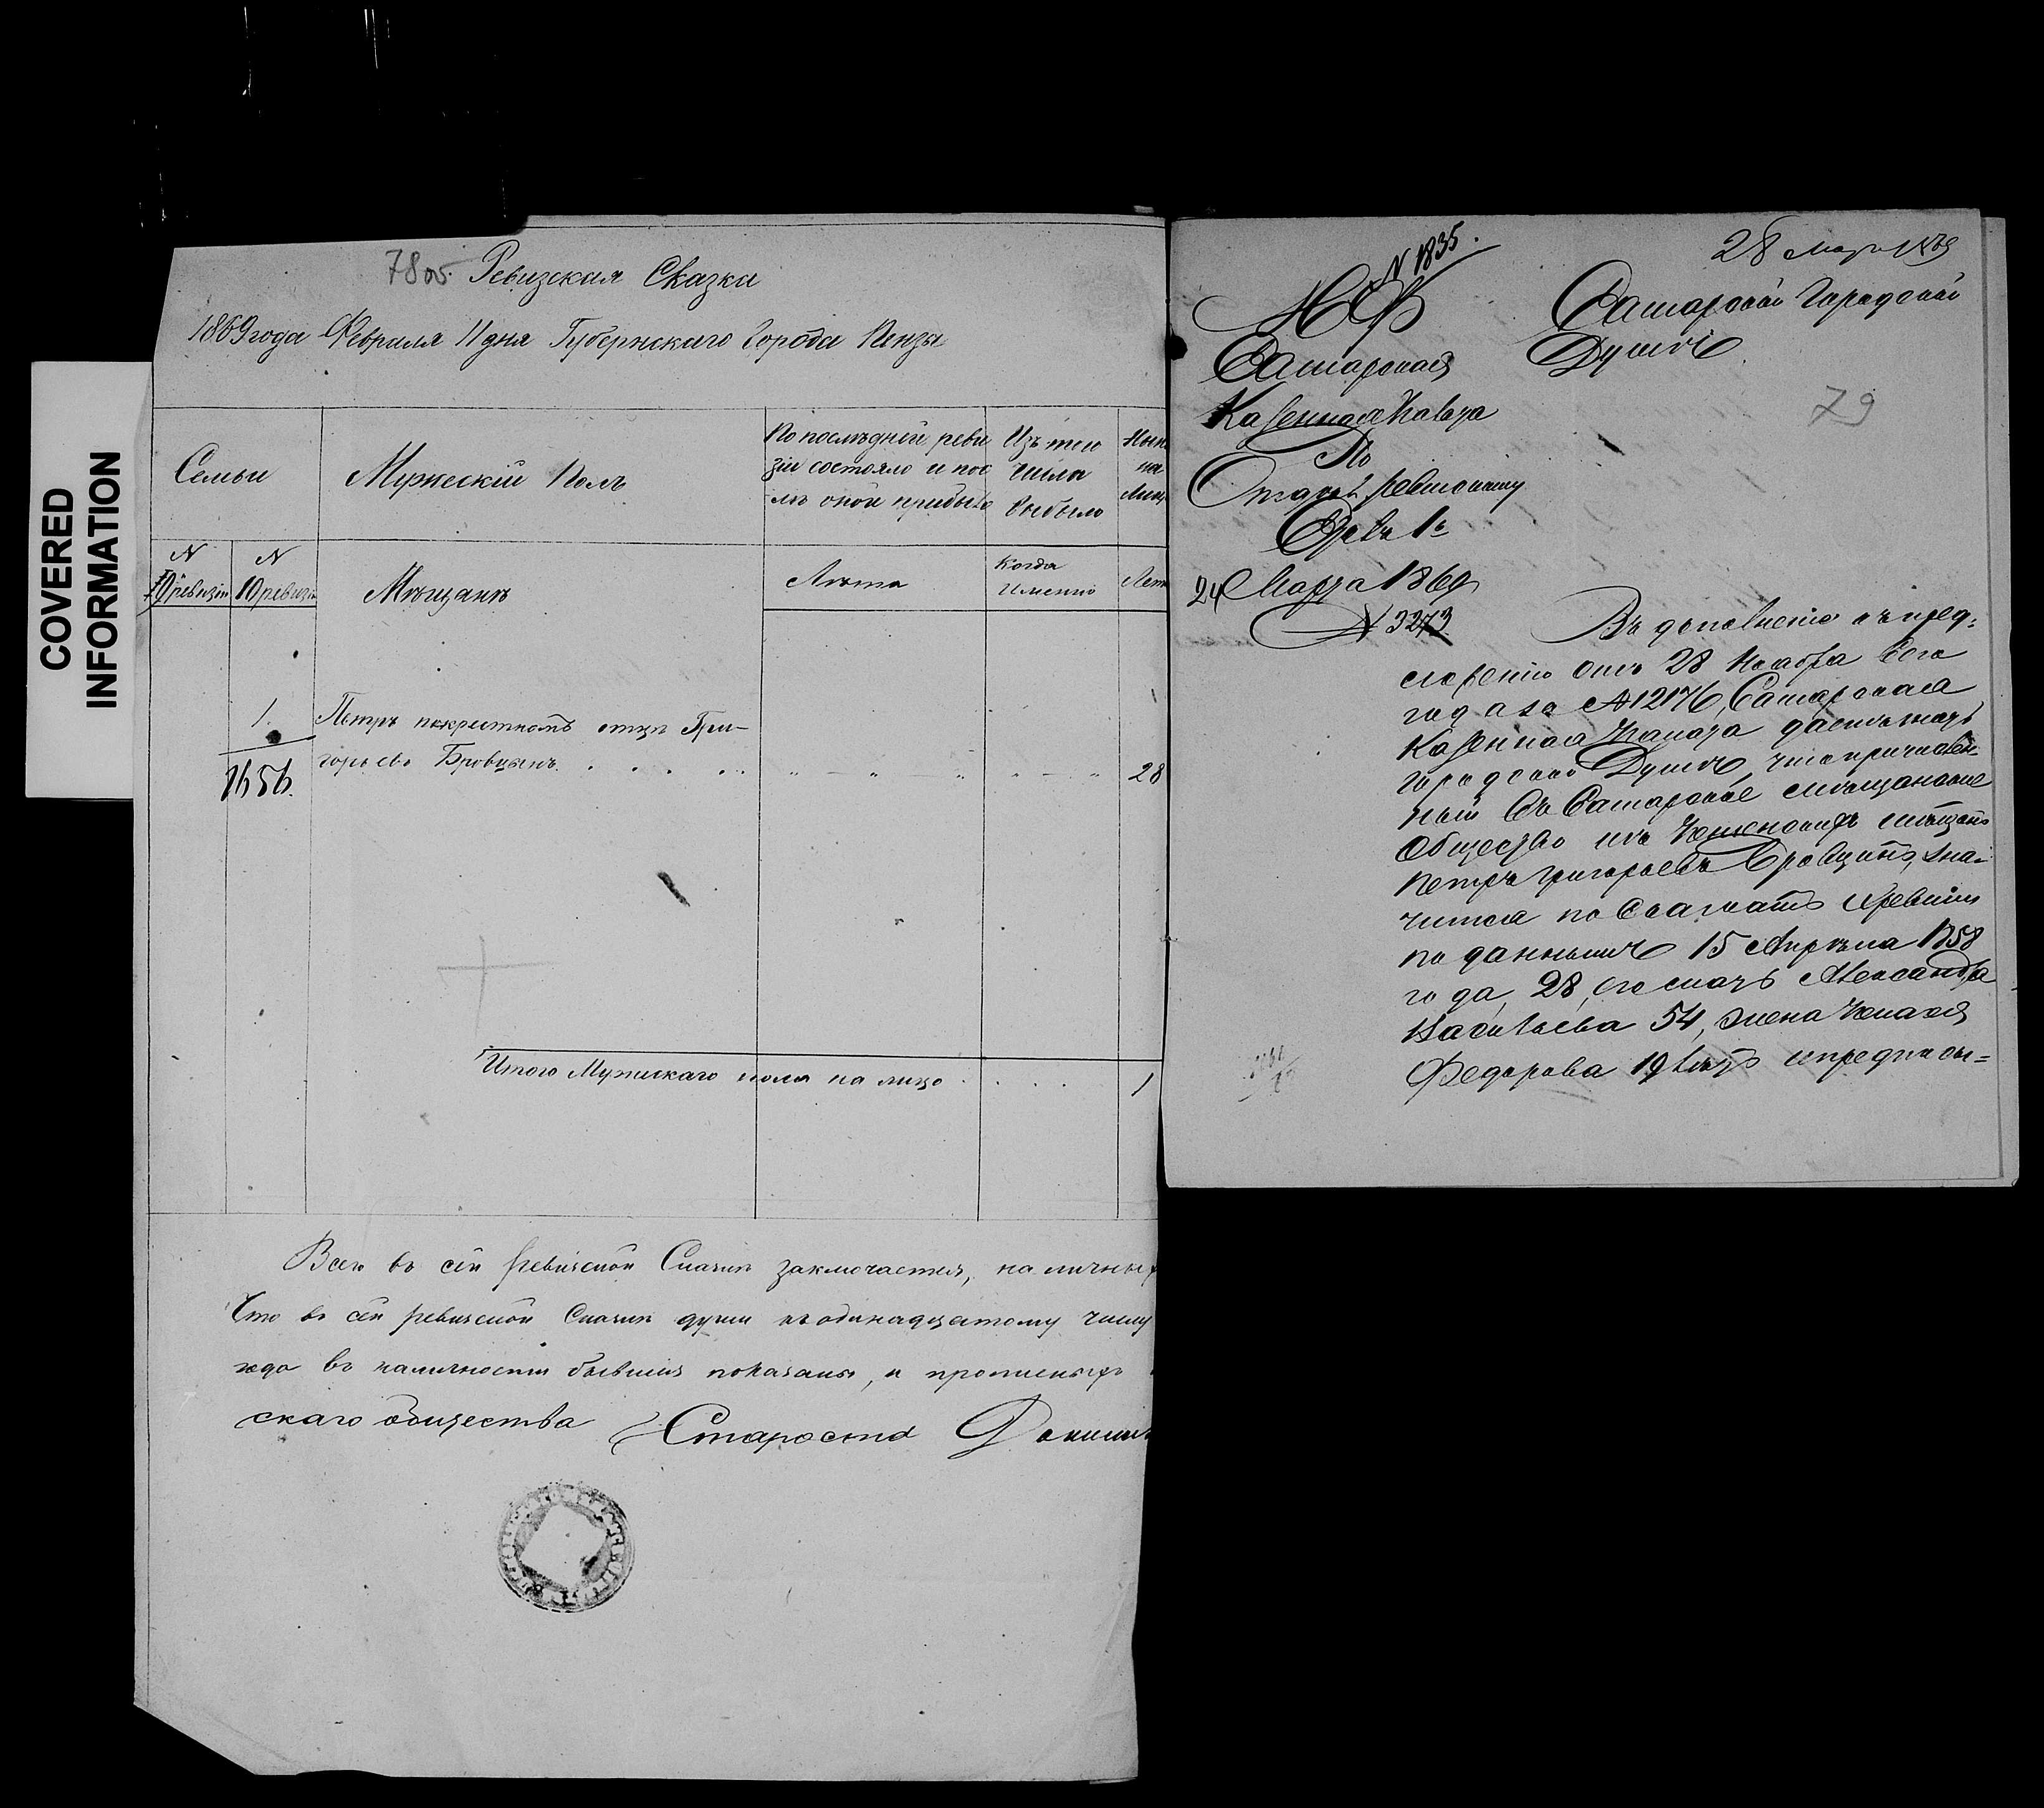 COVERED
INFORMATION
78об. Ревизская Сказка
1869 года Февраля 11 дня Губернскаго Города Пензы
Семьи
Мужескій Полъ
По послѣдней реви
зіи состояло и пос
лѣ оной прибыло
Изъ того
числа
выбыло
Нын
на
Лиц
N
ревизіи
N
10 ревизіи
Мѣщанъ
Лѣта
Когда
Именно
Лет
1.
1656.
Петръ покрестномъ отцѣ Гри-
горьевъ Бровцынъ
28
Итого Мужескаго пола на лицо
1
Всего въ сей ревизской Сказкѣ заключается, на личных
Что въ сей ревизской Сказкѣ души къ одинадцатому числу
года въ наличности бывшія показаны, и прописныхъ
скаго общества Староста
N 1835.
28 Марта 1869
М Ф
Самарская
Казенная Палата
По
Отдѣл. ревизскому
Столъ 1й
24 Марта 1869
N 3273
Самарской Городской
Думѣ
79
Въ дополненіе къ пред-
ложенію отъ 28 Ноября сего
года за N 12176, Самарская
Казенная Палата даетъ знать
Городской Думѣ, что причислен-
ный въ Самарское мѣщанское
Общество изъ Пензенскихъ мѣщанъ
Петръ Григорьевъ Бровцынъ, зна-
чится по Сказкамъ ревизіи
поданнымъ 15 Апрѣля 1858
года, 28, его мать Александра
Васильева 54, жена
Федорова 19 лѣтъ и предписы-